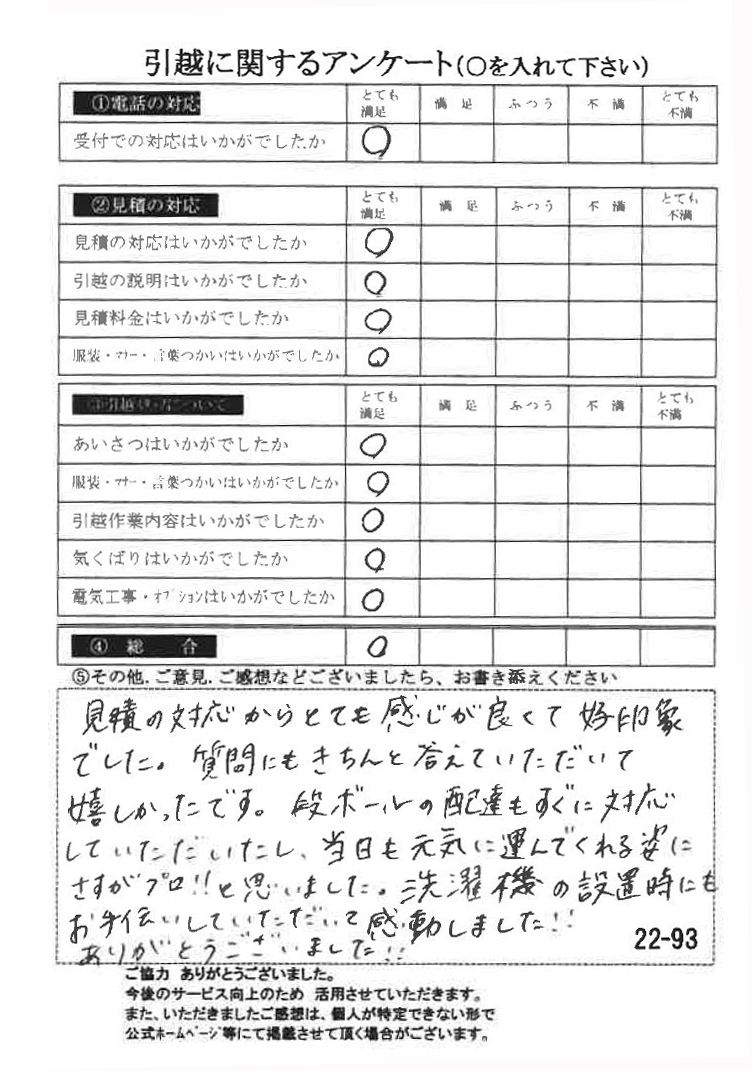 引越に関するアンケート(○を入れて下さい)
①電話の対応 とても満足 満足 ふつう 不満 とても不満
受付での対応はいかがでしたか ○
②見積の対応 とても満足 満足 ふつう 不満 とても不満
見積の対応はいかがでしたか ○
引越の説明はいかがでしたか ○
見積料金はいかがでしたか ○
服装・マナー・言葉つかいはいかがでしたか ○
とても満足 満足 ふつう 不満 とても不満
あいさつはいかがでしたか ○
服装・マナー・言葉つかいはいかがでしたか ○
引越作業内容はいかがでしたか ○
気くばりはいかがでしたか ○
電気工事・オプションはいかがでしたか ○
④ 総 合 ○
⑤その他.ご意見.ご感想などございましたら、お書き添えください
見積の対応からとても感じが良くて好印象
でした。質問にもきちんと答えていただいて
嬉しかったです。段ボールの配達もすぐに対応
していただいたし、当日も元気に運んでくれる姿に
さすがプロ!!と思いました。洗濯機の設置時にも
お手伝いしていただいて感動しました!!
ありがとうございました!!
22-93
ご協力 ありがとうございました。
今後のサービス向上のため 活用させていただきます。
また、いただきましたご感想は、個人が特定できない形で
公式ホームページ等にて掲載させて頂く場合がございます。